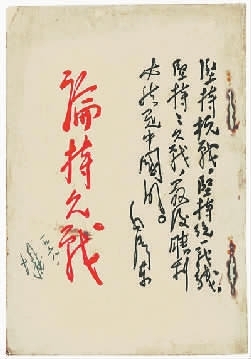 坚持抗战，坚持统一战线，
坚持持久战，最后胜利
必然是中国的。
毛泽东
論持久戰